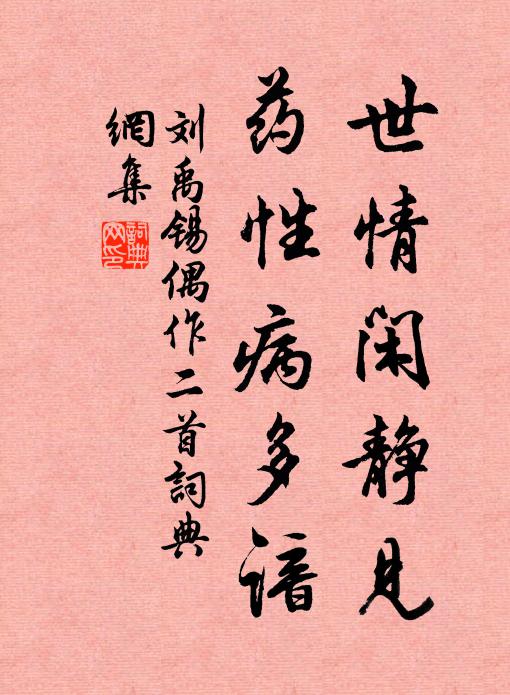 世情闲静见
药性病多谙
刘禹锡偶作二首詞典
網集
詞典網印